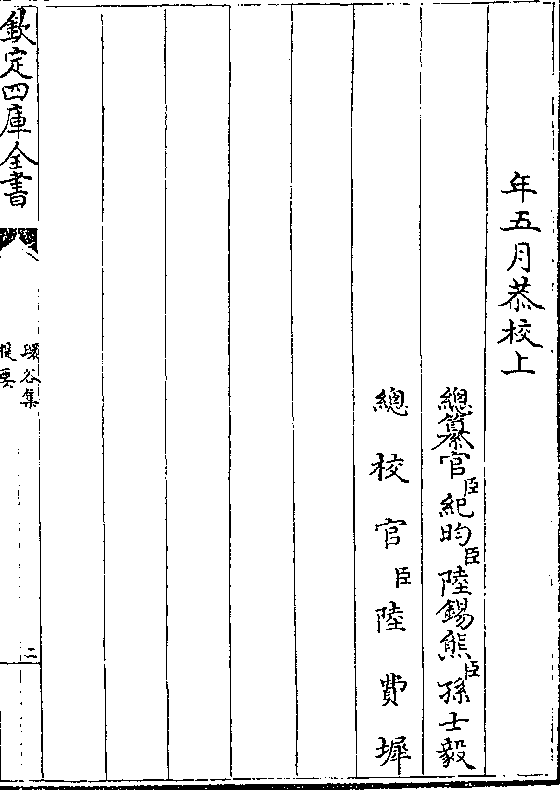 年五月恭校上
總纂官臣紀昀臣陸錫熊臣孫士毅
總校官臣陸費墀
欽定四庫全書
環谷集
提要
二